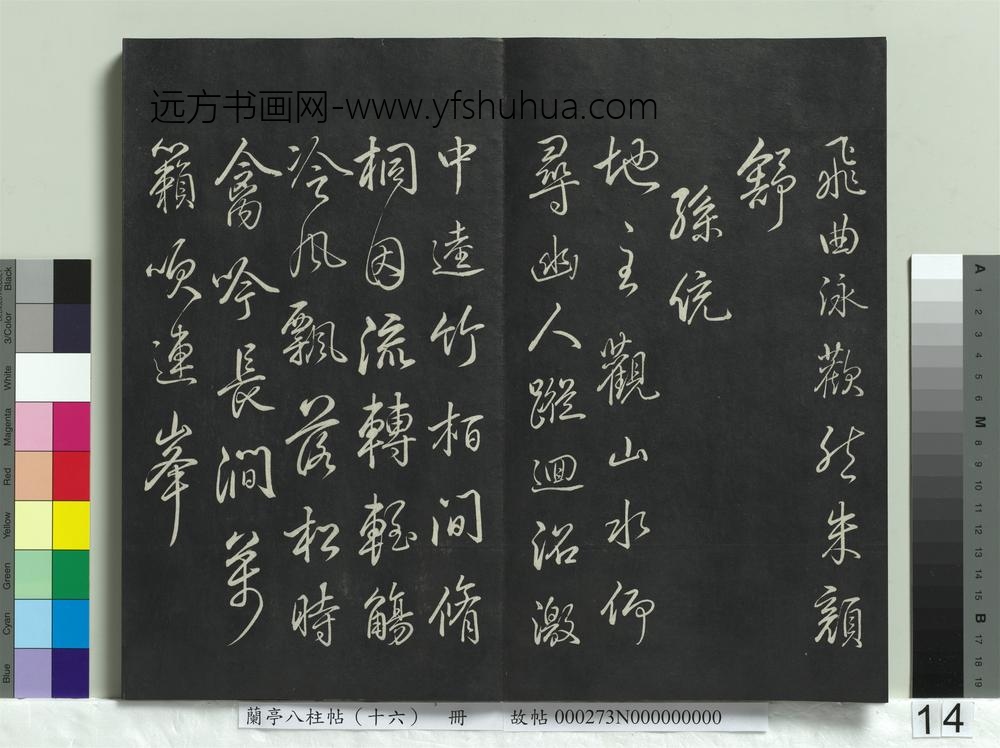 远方书画网-www.yfshuhua.com
飛曲泳歡然朱顏
舒
孫統
地主觀山水仰
尋幽人蹤迴沼激
中逵竹柏間脩
桐因流轉輕觴
冷風飄落松時
禽吟長澗萬
籟吹連峯
蘭亭八柱帖（十六） 冊 故帖 000273N000000000
14
Black
3/Color
White
Magenta
Red
Yellow
Green
Cyan
Blue
A
1
2
3
4
5
6
M
8
9
10
11
12
13
14
15
B
17
18
19